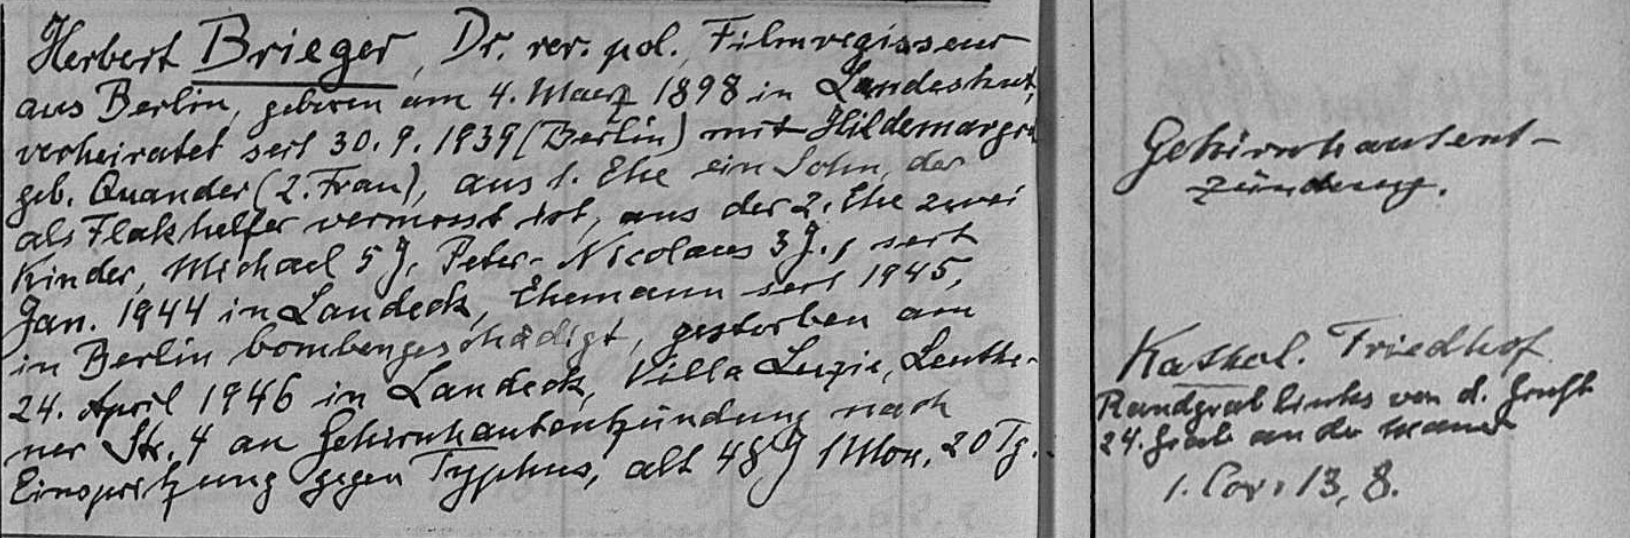 Herbert Brieger, Dr. rer. pol. Filmregisseur
aus Berlin, geboren am 4. Maerz 1898 in Landeshut,
verheiratet seit 30. 9. 1939 (Berlin) mit Hildemargret
geb. Quander (2. Frau), aus 1. Ehe ein Sohn, der
als Flakhelfer vermisst ist, aus der 2. Ehe zwei
Kinder, Michael 5 J. Peter-Nicolaus 3 J., seit
Jan. 1944 in Landeck, Ehemann seit 1945,
in Berlin bombengeschädigt, gestorben am
24. April 1946 in Landeck, Villa Luzie, Leuthe-
ner Str. 4 an Gehirnhautentzündung nach
Einspritzung gegen Typhus, alt 48 J 1 Mon. 20 Tg.
Gehirnhautent-
zündung.
Kathol. Friedhof
Randgrab links von d. Gruft
24. Grab an der Mauer
1. Cor. 13, 8.